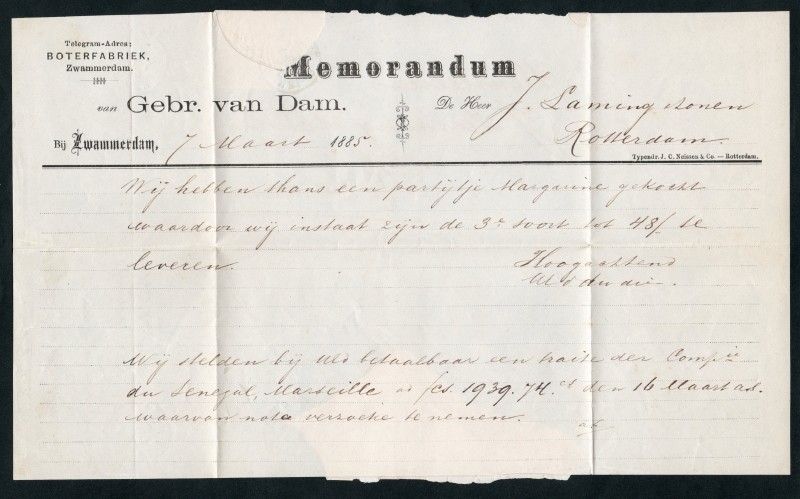 Telegram-Adres:
BOTERFABRIEK,
Zwammerdam.
Memorandum
van Gebr. van Dam.
De Heer J. Laming & zonen
Rotterdam.
Bij Zwammerdam, 7 Maart 1885.
Typendr. J. C. Neissen & Co. — Rotterdam.
Wij hebben thans een partijtje Margarine gekocht
waardoor wij instaat zijn de 3e soort tot 48/ te
leveren. Hoogachtend
Wij stelden bij UEd betaalbaar een traite der Compie
du Senegal, Marseille ad fcs. 1939.74. ct den 16 Maart a.s.
waarvan nota verzoeke te nemen.